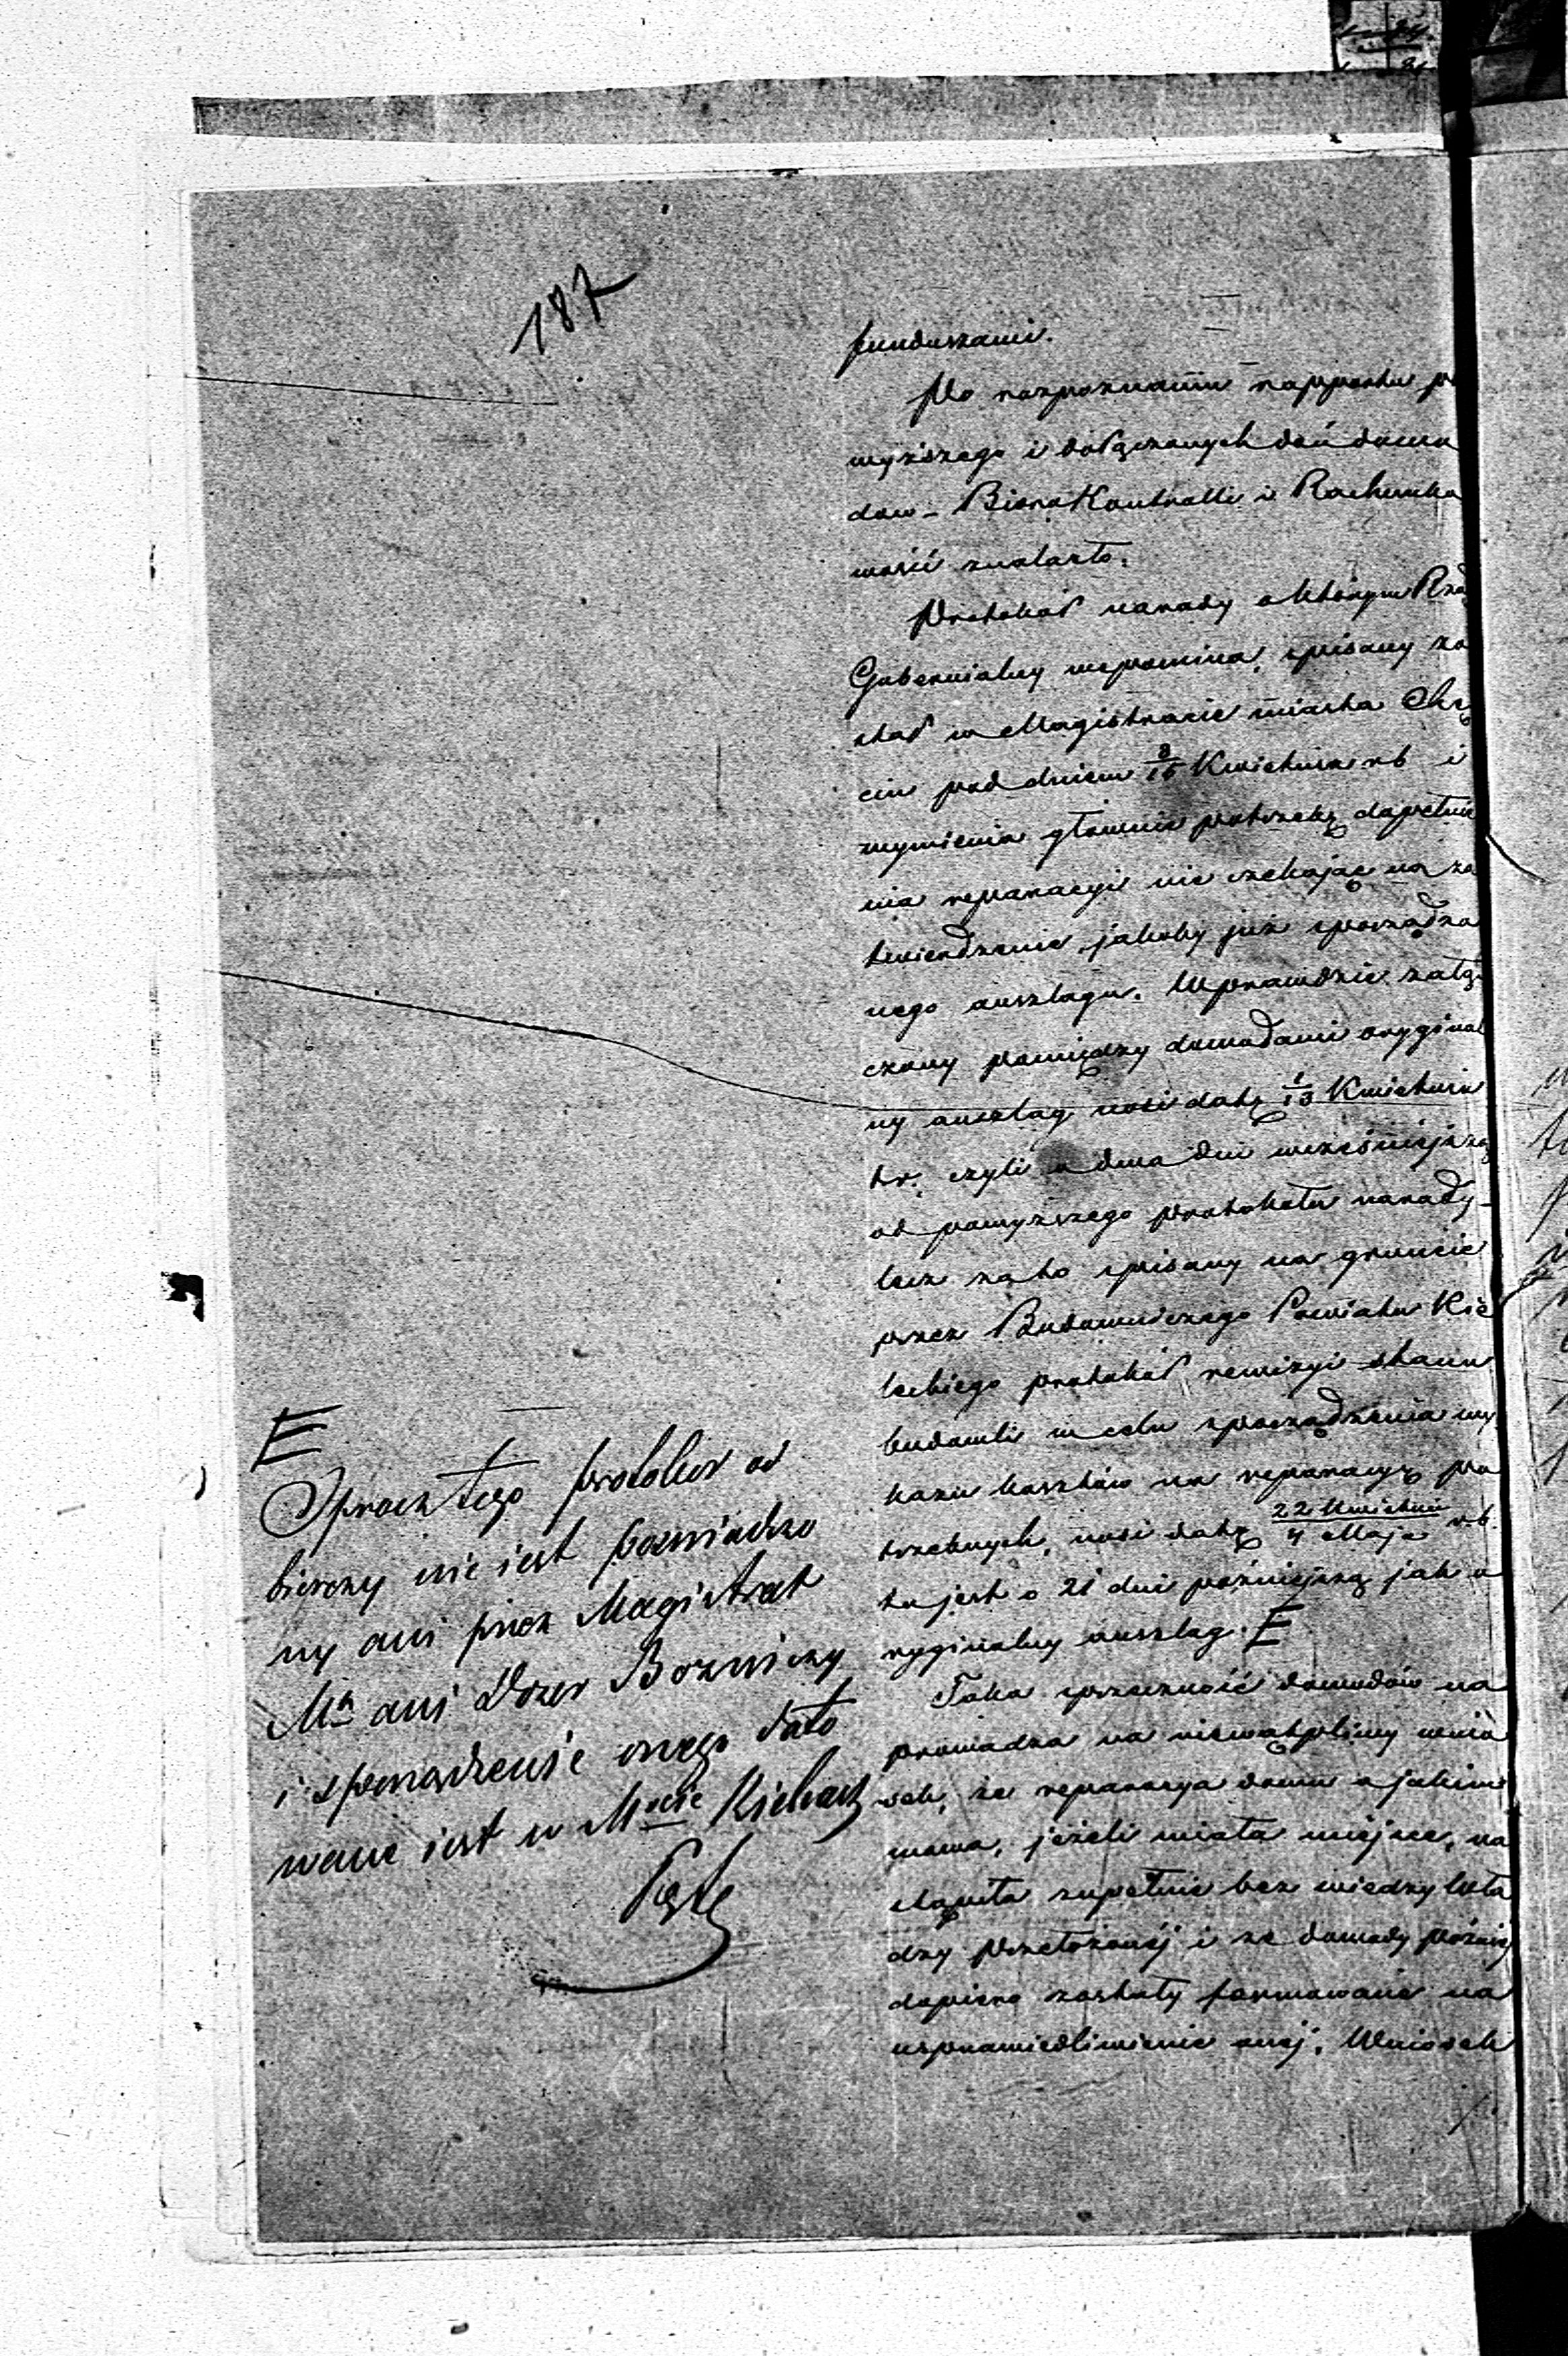 187
funduszami.
Po rozpoznaniu rapportu po
wyższego i dołączonych doń dowo
dów – Biuro Kontrolli i Rachunko
wości znalazło,
Protokół narady o którym Rząd
Gubernialny wspomina, spisany zo
stał w Magistracie miasta Chę
cin pod dniem 3/15 Kwietnia r b i
wymienia głównie potrzebę dopełnie
nia reparacyi nie czekając na za
twierdzenie jakoby już sporządzo
nego anszlagu. Wprawdzie załą
czony pomiędzy dowodami oryginal
ny anszlag nosi datę 1/13 Kwietnia
t.r. czyli o dwa dni wcześniejszą
od powyższego protokołu narady –
lecz za to spisany na gruncie
przez Budowniczego Powiatu Kie
leckiego protokół rewizyi stanu
budowli w celu sporządzenia wy
kazu kosztów na reparacyę po
trzebnych, nosi datę 22 Kwietnia / 4 Maja r. b.
to jest o 21 dni późniejszą jak o
ryginalny anszlag. E
Taka sprzeczność dowodów na
prowadza na niewątpliwy wnio
sek, że reparacya domu o jakim
mowa, jeżeli miała miejsce, na
stąpiła zupełnie bez wiedzy Wła
dzy Przełożonéj i że dowody późniéj
dopiero zostały formowane na
usprawiedliwienie onéj. Wniosek
E
Oprócz tego protokół od
biorczy nie jest poświadczo
ny ani przez Magistrat
Mta ani Dozór Bożniczy
i sporządzenie onego dato
wane jest w Mieście Kielcach